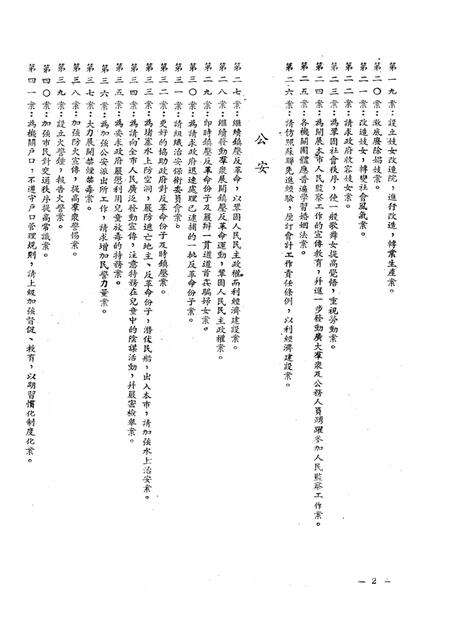 第一九案：設立妓女改造院，進行改造，轉業生產案。
第二〇案：澈底廢除娼妓案。
第二一案：改造妓女，轉變社會風氣案。
第二二案：請求政府收容妓女案。
第二三案：為鞏固社會秩序，使一般歌舞女提高覺悟，重視勞動案。
第二四案：為開展本市人民監察工作的宣傳教育，幷進一步發動廣大羣衆及公務人員踴躍參加人民監察工作案。
第二五案：各機關團體應普遍學習婚姻法案。
第二六案：請仿照蘇聯先進經驗，製訂會計工作責任條例，以利經濟建設案。
公安
第二七案：繼續鎮壓反革命，以鞏固人民民主政權而利經濟建設案。
第二八案：繼續發動羣衆展開鎮壓反革命運動，鞏固人民民主政權案。
第二九案：即時鎮壓反革命份子及嚴辦一貫道道首奸騙婦女案。
第三〇案：為請求政府迅速處理已逮捕的一批反革命份子案。
第三一案：請組織治安保衛委員會案。
第三二案：更好的協助政府對反革命份子及時鎮壓案。
第三三案：為堵塞水上防空洞，嚴防逃亡地主、反革命份子，潛伏民船，出入本市，請加强水上治安案。
第三四案：為請向全市人民廣泛發動宣傳，注意特務在兒童中的陰謀活動，幷嚴密檢舉案。
第三五案：為要求政府嚴懲利用兒童放毒的特務案。
第三六案：為加强公安派出所工作，請求增加民警力量案。
第三七案：大力展開禁煙禁毒案。
第三八案：加强防火宣傳，提高羣衆警惕案。
第三九案：設立火警鐘，報告火警案。
第四〇案：加强市民對交通秩序提高常識案。
第四一案：為機關戶口，不遵守戶口管理規則，請上級加强督促、教育，以期習慣化制度化案。
— 2 —